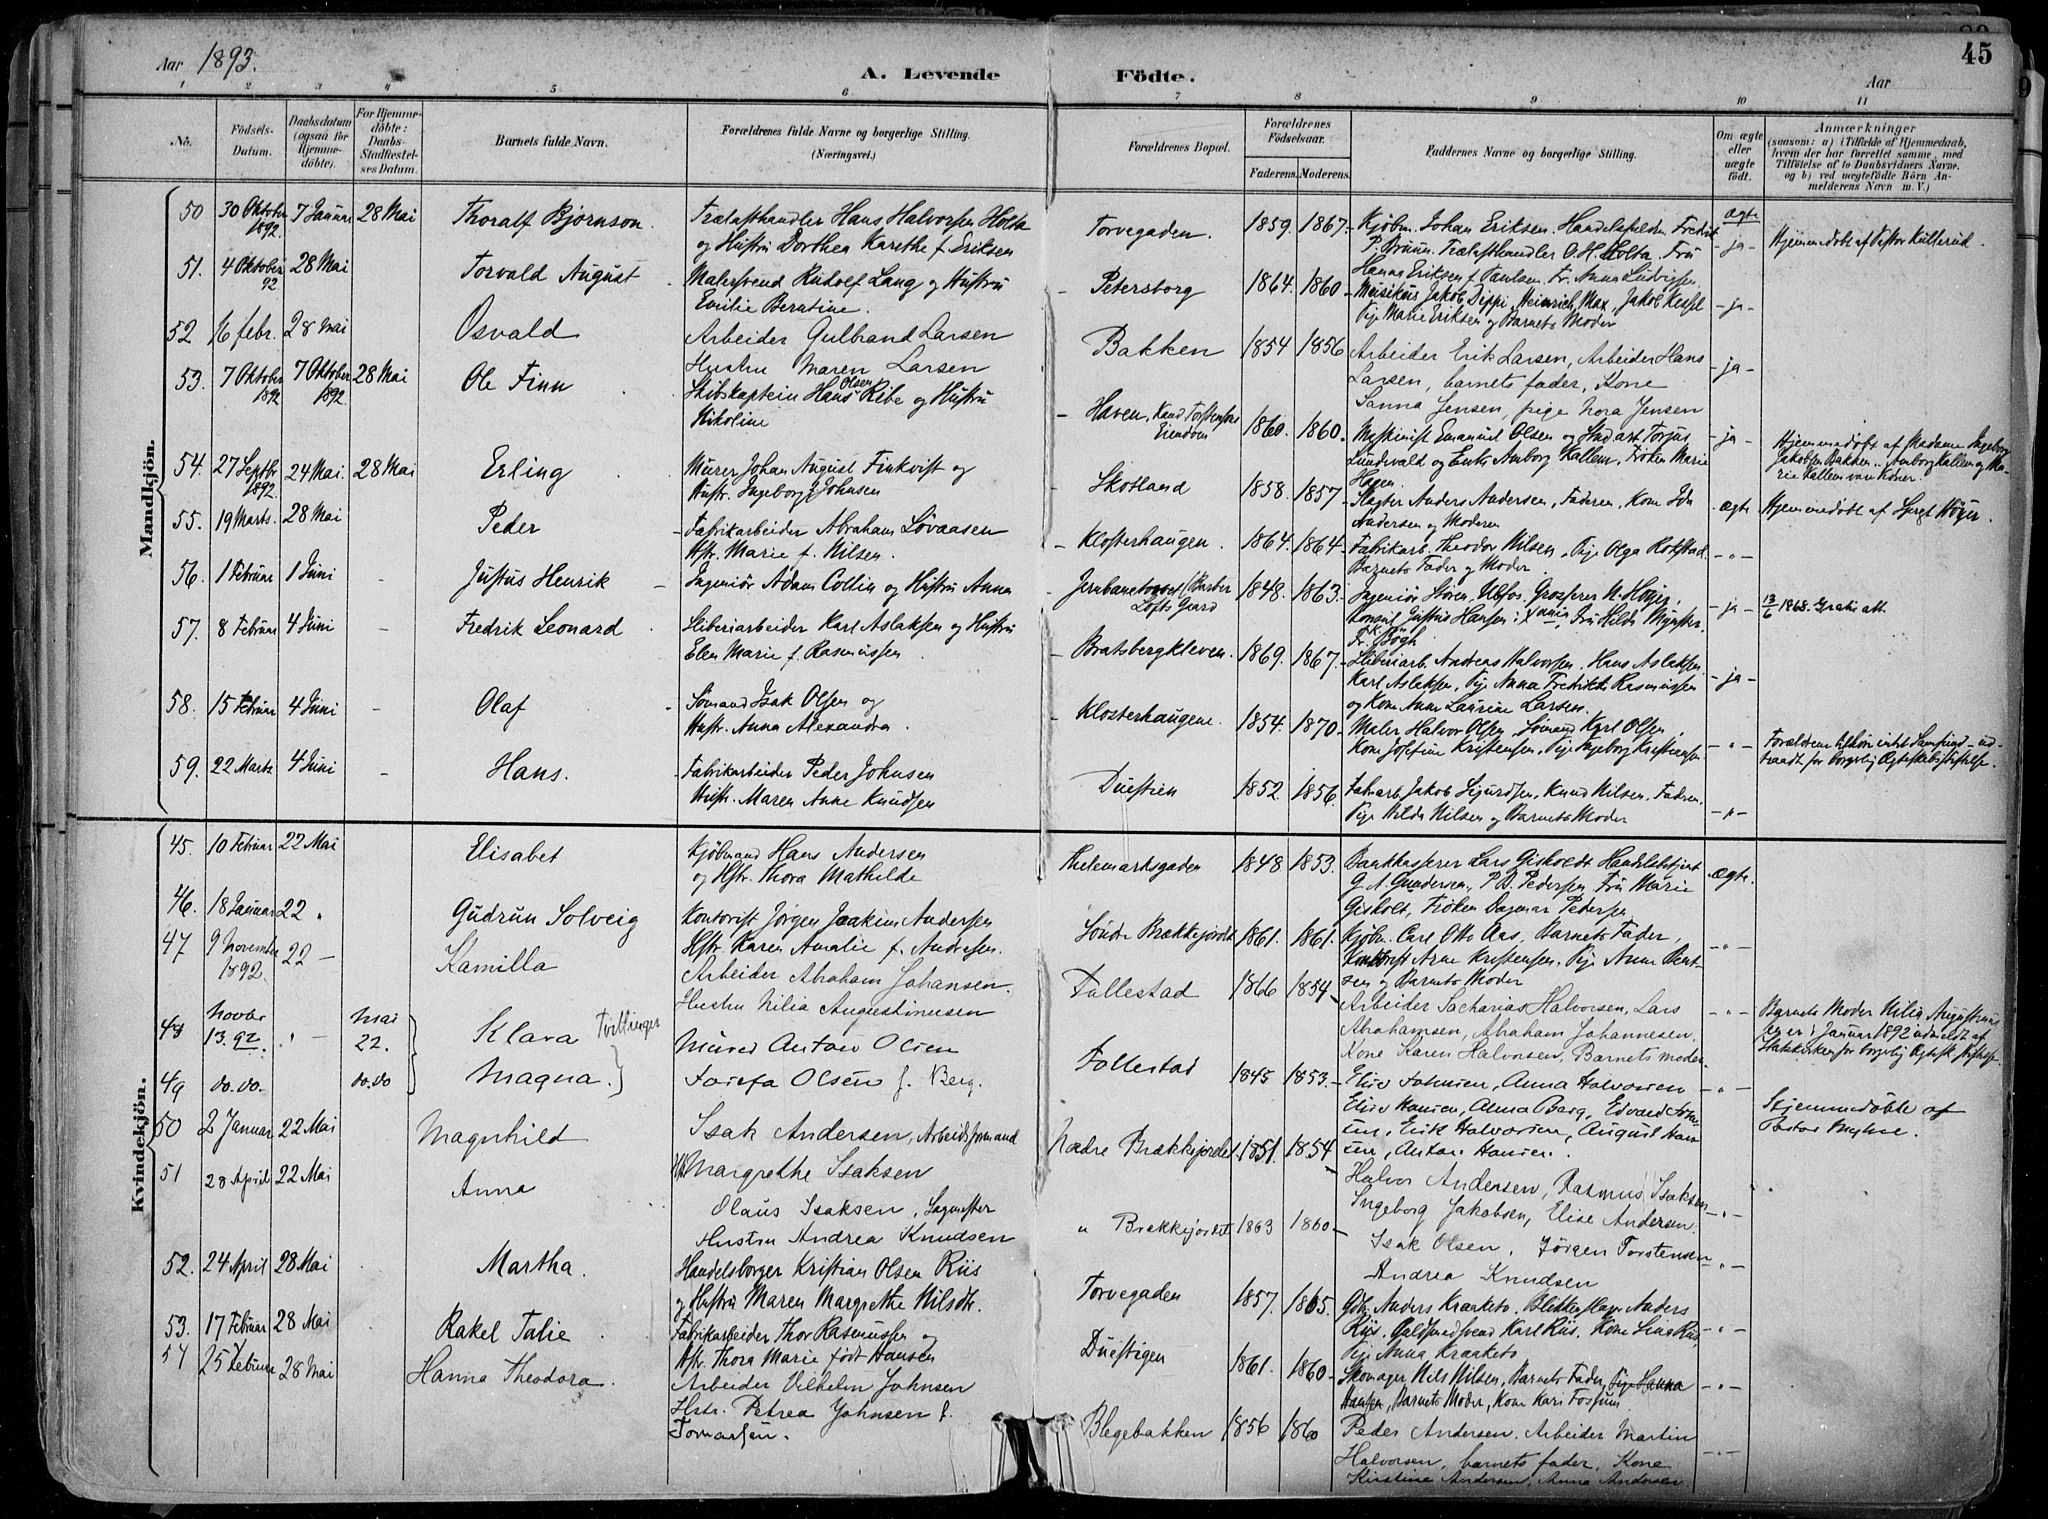 Aar 1893.
A. Levende Födte.
Aar
45
1 2 3 4 5 6 7 8 9 10 11
No.
Födsels-Datum.
Daabsdatum (ogsaa for Hjemmedöbte).
For Hjemmedöbte: Daabs-Stadfæstelses Datum.
Barnets fulde Navn.
Forældrenes fulde Navne og borgerlige Stilling. (Næringsvei.)
Forældrenes Bopæl.
Forældrenes Födselsaar.
Faderens. Moderens.
Faddernes Navne og borgerlige Stilling.
Om ægte eller uægte født.
Anmærkninger
(saasom: a) i Tilfælde af Hjemmedaab, hvem der har forrettet samme, med Tilföielse af to Daabsvidners Navne. og b) ved uægtefödte Börn Anmelderens Navn m. V.)
Mandkjön.
50 30 Oktober 1892. 7 Januar 28 Mai Thoralf Bjørnson. Trælasthandler Hans Halvorsen Holta
og Hustru Dorthea Karethe f. Eriksen
Torvegaden. 1859. 1867. Kjøbm. Johan Eriksen. Fredrik
P. Bruun. Trælasthandler O. H. Holta, Fru
Hanna Eriksen f. Paulsen, Fr. Anna Ludvigsen.
ægte ja Hjemmedøbt af Pastor Kullerud.
51. 4 Oktober 92 28 Mai Torvald August Malersvend Rudolf Lang og Hustru
Emilie Berntine.
Petersborg 1864. 1860 Musikus Jakob Dippi, Heinrich Max, Jakob
Pige Marie Eriksen og Barnets Moder
ja
52 16 febr. 28 mai Osvald Arbeider Gulbrand Larsen
Hustru Maren Larsen
Bakken 1854 1856 Arbeider Erik Larsen, Arbeider Hans
Larsen, barnets fader, Kone
Sanna Jensen, pige Nora Jensen
ja
53. 7 Oktober 1892 7 Oktober 1892. 28 Mai Ole Finn Skibskaptein Hans Olsen Ribe og Hustru
Nikoline
Haven, Knud Torstensens Eiendom 1860. 1860. Maskinist Emanuel Olsen og Torjus
Lundvald og Enke Anborg Kallem, Frøken Marie
ja
54. 27 Septbr. 1892 24 Mai. 28 Mai Erling Murer Johan August Finkvist og
Hustr. Ingeborg Johnsen
Skotland 1858. 1857 Slagter Anders Andersen, Faderen, Kone Ida
Andersen og Moderen
ægte
Hjemmedøbt af Madame Ingeborg
Jakobsen Bakken. Anborg Kallem og Marie
55. 19 Marts. 28 Mai Peder Fabrikarbeider Abraham Løvaasen
Hstr. Marie f. Nilsen.
Klosterhaugen. 1864. 1864. Fabrikarb. Theodor Nilsen, Pige Olga Rokstad
Barnets Fader og Moder
Hjemmedøbt af Høyer.
56. 1 Februar 1 Juni Justus Henrik Ingeniør Adam Collin og Hustru Anna
Jernbanetorvet (Barber Lofts Gaard 1848. 1863. Ingeniør Støren, Ulefos, Grosserer N. Høyer,
Konsul Justus Hansen i Xania, Fru Hilda Mynster,
Fr. Bøgh
ja
13/6 1868. Gratis att.
57. 8 Februar 4 Juni Fredrik Leonard Sliberiarbeider Karl Aslaksen og Hustru
Elen Marie f. Rasmussen
Bratsbergkleven. 1869. 1867. Sliberiarb. Andreas Halvorsen. Hans Aslaksen
Karl Aslaksen, Pige Anna Fredrikke Rasmussen
og Kone Anne Laurine Larsen.
ja
58. 15 Februar 4 Juni Olaf Sømand Isak Olsen og
Hustr. Anna Alexandra
Klosterhaugene. 1854. 1870 Maler Halvor Olsen, Sømand Karl Olsen,
Kone Josefine Kristensen, Pige Ingeborg Kristensen
59. 22 Marts 4 Juni Hans. Fabrikarbeider Peder Johnsen
Hustr. Maren Anne Knudsen
Duestien 1852. 1856. Fabrarb. Jakob Sigurdsen, Knud Nilsen, Faderen.
Pige Hilda Nilsen og Barnets Moder
Kvindekjön.
45. 10 Februar 22 Mai Elisabet Kjøbmand Hans Andersen
og Hstr. Thora Mathilde
Thelemarksgaden 1848 1853. Bankkasserer Lars Giskoldt
G. A. Gundersen, P. D. Pedersen, Fru Marie
Giskolt, Frøken Dagmar Pedersen
ægte.
46. 18 Januar 22 „ Gudrun Solveig Kontorist Jørgen Joakim Andersen
Hstr. Karen Amalie f. Andersen.
Søndre Brækkejordet 1861. 1861. Kjøbm. Carl Otto Aas, Barnets Fader,
Kontorist Arne Kristensen. Pige Anne Berntsen
og Barnets Moder
47 9 November 1892 22 Kamilla Arbeider Abraham Johansen.
Hustru Nilia Augustinusen
Follestad 1866 1854 Arbeider Sacharias Halvorsen, Lars
Abrahamsen, Abraham Johannesen,
Kone Karen Halvorsen, Barnets moder
Barnets Moder Nilia Augustinusen
er i Januar 1892 udmeldt af
Statskirken for borgelig Ægtesk. Stiftelse
48 Novbr 13. 92. Mai 22. Klara Tvillinger Murer Anton Olsen
49 do. do. do. do Magna. Josefa Olsen f. Berg.
Follestad 1845 1853. Elise Johnsen, Anna Halvorsen
Elise Hansen, Anna Berg, Edvard
Erik Halvorsen, August Hansen,
Anton Hansen.
Hjemmedøbte af
Pastor Myhre.
50 2 Januar 22 Mai Magnhild Isak Andersen, Arbeidsformand
Margrethe Isaksen
Nedre Brækkejordet 1851. 1854 Halvor Andersen, Rasmus Isaksen
Ingeborg Jakobsen, Elise Andersen
51 28 April 22 Mai Anna Olaus Isaksen, Sagmester
Hustru Andrea Knudsen
„ Brekkejordet 1863 1860 Isak Olsen, Jørgen Torstensen
Andrea Knudsen
52. 24 April 28 Mai Martha. Handelsborger Kristian Olsen Riis
og Hustru Maren Margrethe Nilsdtr.
Torvegaden 1857. 1865. Gdb. Anders Kraaketo. Blikkenslager Anders
Riis. Guldsmedsvend Karl Riis. Kone Lina Riis,
Pige Anna Kraaketo
53. 17 Februar 28 Mai Rakel Talie Fabrikarbeider Thor Rasmussen og
Hstr. Thora Marie født Hansen
Duestigen 1861. 1860 Skomager Nils Nilsen, Barnets Fader, Pige Hanna
Hansen, Barnets Moder, Kone Kari Fossum
54 25 Februar 28 Mai Hanna Theodora. Arbeider Vilhelm Johnsen
Hstr. Petrea Johnsen f.
Tomassen.
Blegebakken 1856 1860 Peder Andersen. Arbeider Martin
Halvorsen, barnets fader, Kone
Kirstine Andersen, Anna Andersen